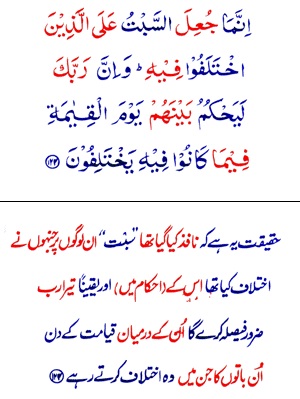 اِنَّمَا جُعِلَ السَّبْتُ عَلَى الَّذِيْنَ
اخْتَلَفُوْا فِيْهِ ؕ وَ اِنَّ رَبَّكَ
لَيَحْكُمُ بَيْنَهُمْ يَوْمَ الْقِيٰمَةِ
فِيْمَا كَانُوْا فِيْهِ يَخْتَلِفُوْنَ ﴿۱۲۴﴾
حقیقت یہ ہے کہ نافذ کیا گیا تھا ”سبْت“ ان لوگوں پر جنہوں نے
اختلاف کیا تھا اس کے (احکام میں) اور یقینًا تیرا رب
ضرور فیصلہ کرے گا اُن کے درمیان قیامت کے دن
اُن باتوں کا جن میں وہ اختلاف کرتے رہے ﴿۱۲۴﴾